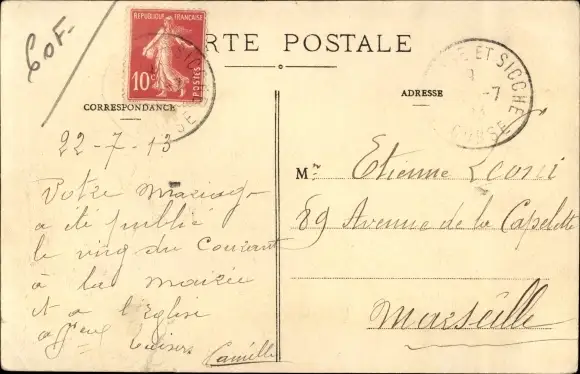 60F.
REPUBLIQUE FRANÇAISE
10c POSTES
CARTE POSTALE
CORRESPONDANCE
ADRESSE
ET SICCHE
CORSE
22-7-13
Votre mariage
a été publié
le ving du Courant
à la mairie
et a l'Eglise
baisers Camille
Mr Etienne Leoni
89 Avenue de la Capelette
Marseille